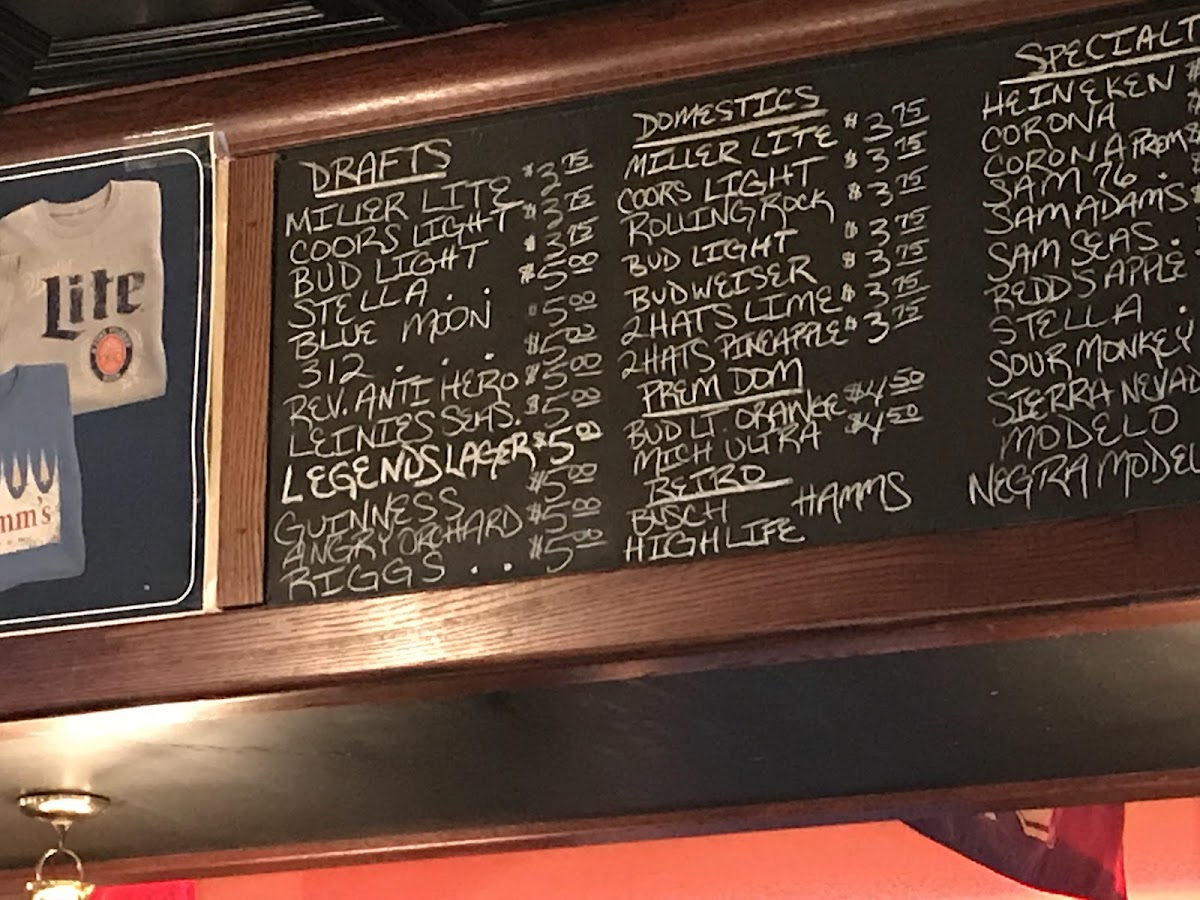 Lite
mm's
DRAFTS
MILLER LITE $3.75
COORS LIGHT $3.75
BUD LIGHT $3.75
STELLA . . $5.00
BLUE MOON $5.00
312 . . . $5.00
REV. ANTI HERO $5.00
LEINIES SEAS. $5.00
LEGENDS LAGER $5.00
GUINNESS $5.00
ANGRY ORCHARD $5.00
RIGGS . . $5.00
DOMESTICS
MILLER LITE $3.75
COORS LIGHT $3.75
ROLLING ROCK $3.75
BUD LIGHT $3.75
BUDWEISER $3.75
2HATS LIME $3.75
2HATS PINEAPPLE $3.75
PREM DOM
BUD LT. ORANGE $4.50
MICH ULTRA $4.50
RETRO
BUSCH HAMMS
HIGHLIFE
SPECIALT
HEINEKEN $
CORONA
CORONA PREM
SAM 76 .
SAM ADAMS
SAM SEAS .
REDD'S APPLE
STELLA .
SOUR MONKEY
SIERRA NEVA
MODELO
NEGRA MODEL